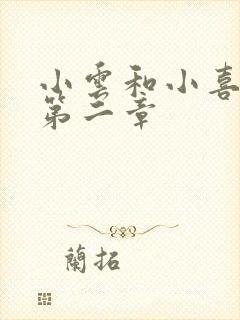 小雲和小喜
第二章
蘭拓